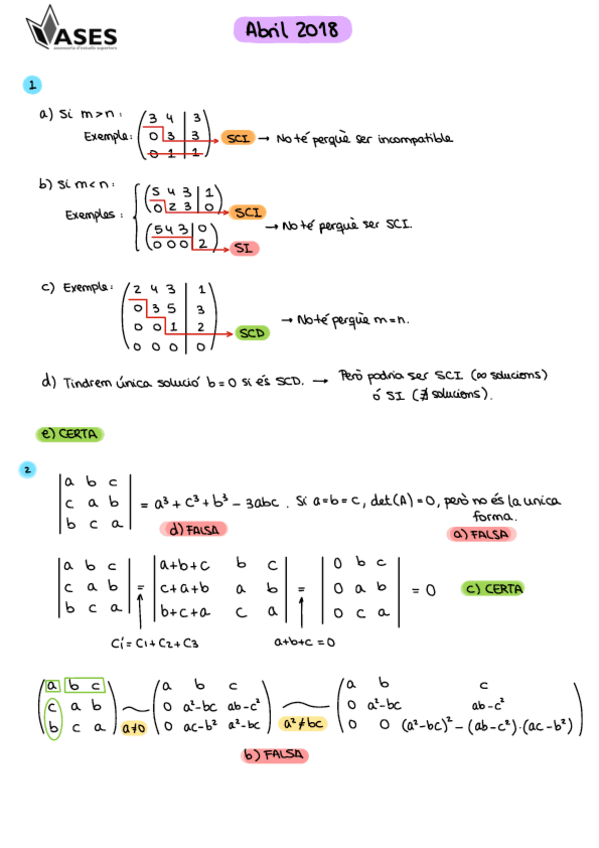 ASES
assessoria d'estudis superiors
Abril 2018
1
a) Si m>n:
Exemple: (3 4 | 3
0 3 | 3
0 1 | 1) SCI → No té perquè ser incompatible
b) Si m<n:
Exemples: { (5 4 3 | 1
0 2 3 | 0) SCI
(5 4 3 | 0
0 0 0 | 2) SI
→ No té perquè ser SCI.
c) Exemple: (2 4 3 | 1
0 3 5 | 3
0 0 1 | 2
0 0 0 | 0) SCD → No té perquè m=n.
d) Tindrem única solució b=0 si és SCD. → Però podria ser SCI (∞ solucions)
ó SI (∄ solucions).
e) CERTA
2
|a b c
c a b
b c a| = a³ + c³ + b³ - 3abc. Si a=b=c, det(A)=0, però no és la unica
forma.
d) FALSA
a) FALSA
|a b c
c a b
b c a| = |a+b+c b c
c+a+b a b
b+c+a c a| = |0 b c
0 a b
0 c a| = 0
c) CERTA
C1' = C1+C2+C3
a+b+c=0
(a b c
c a b
b c a) ~ a≠0 (a b c
0 a²-bc ab-c²
0 ac-b² a²-bc) ~ a²≠bc (a b c
0 a²-bc ab-c²
0 0 (a²-bc)² - (ab-c²)·(ac-b²))
b) FALSA